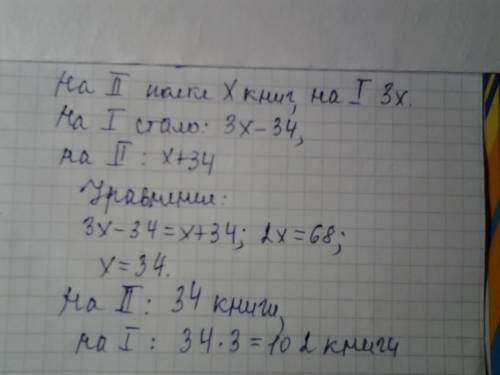 На II полке X книг, на I 3x.
На I стало: 3x-34,
на II: x+34
Уравнение:
3x-34=x+34; 2x=68;
x=34.
На II: 34 книги,
на I: 34·3=102 книги